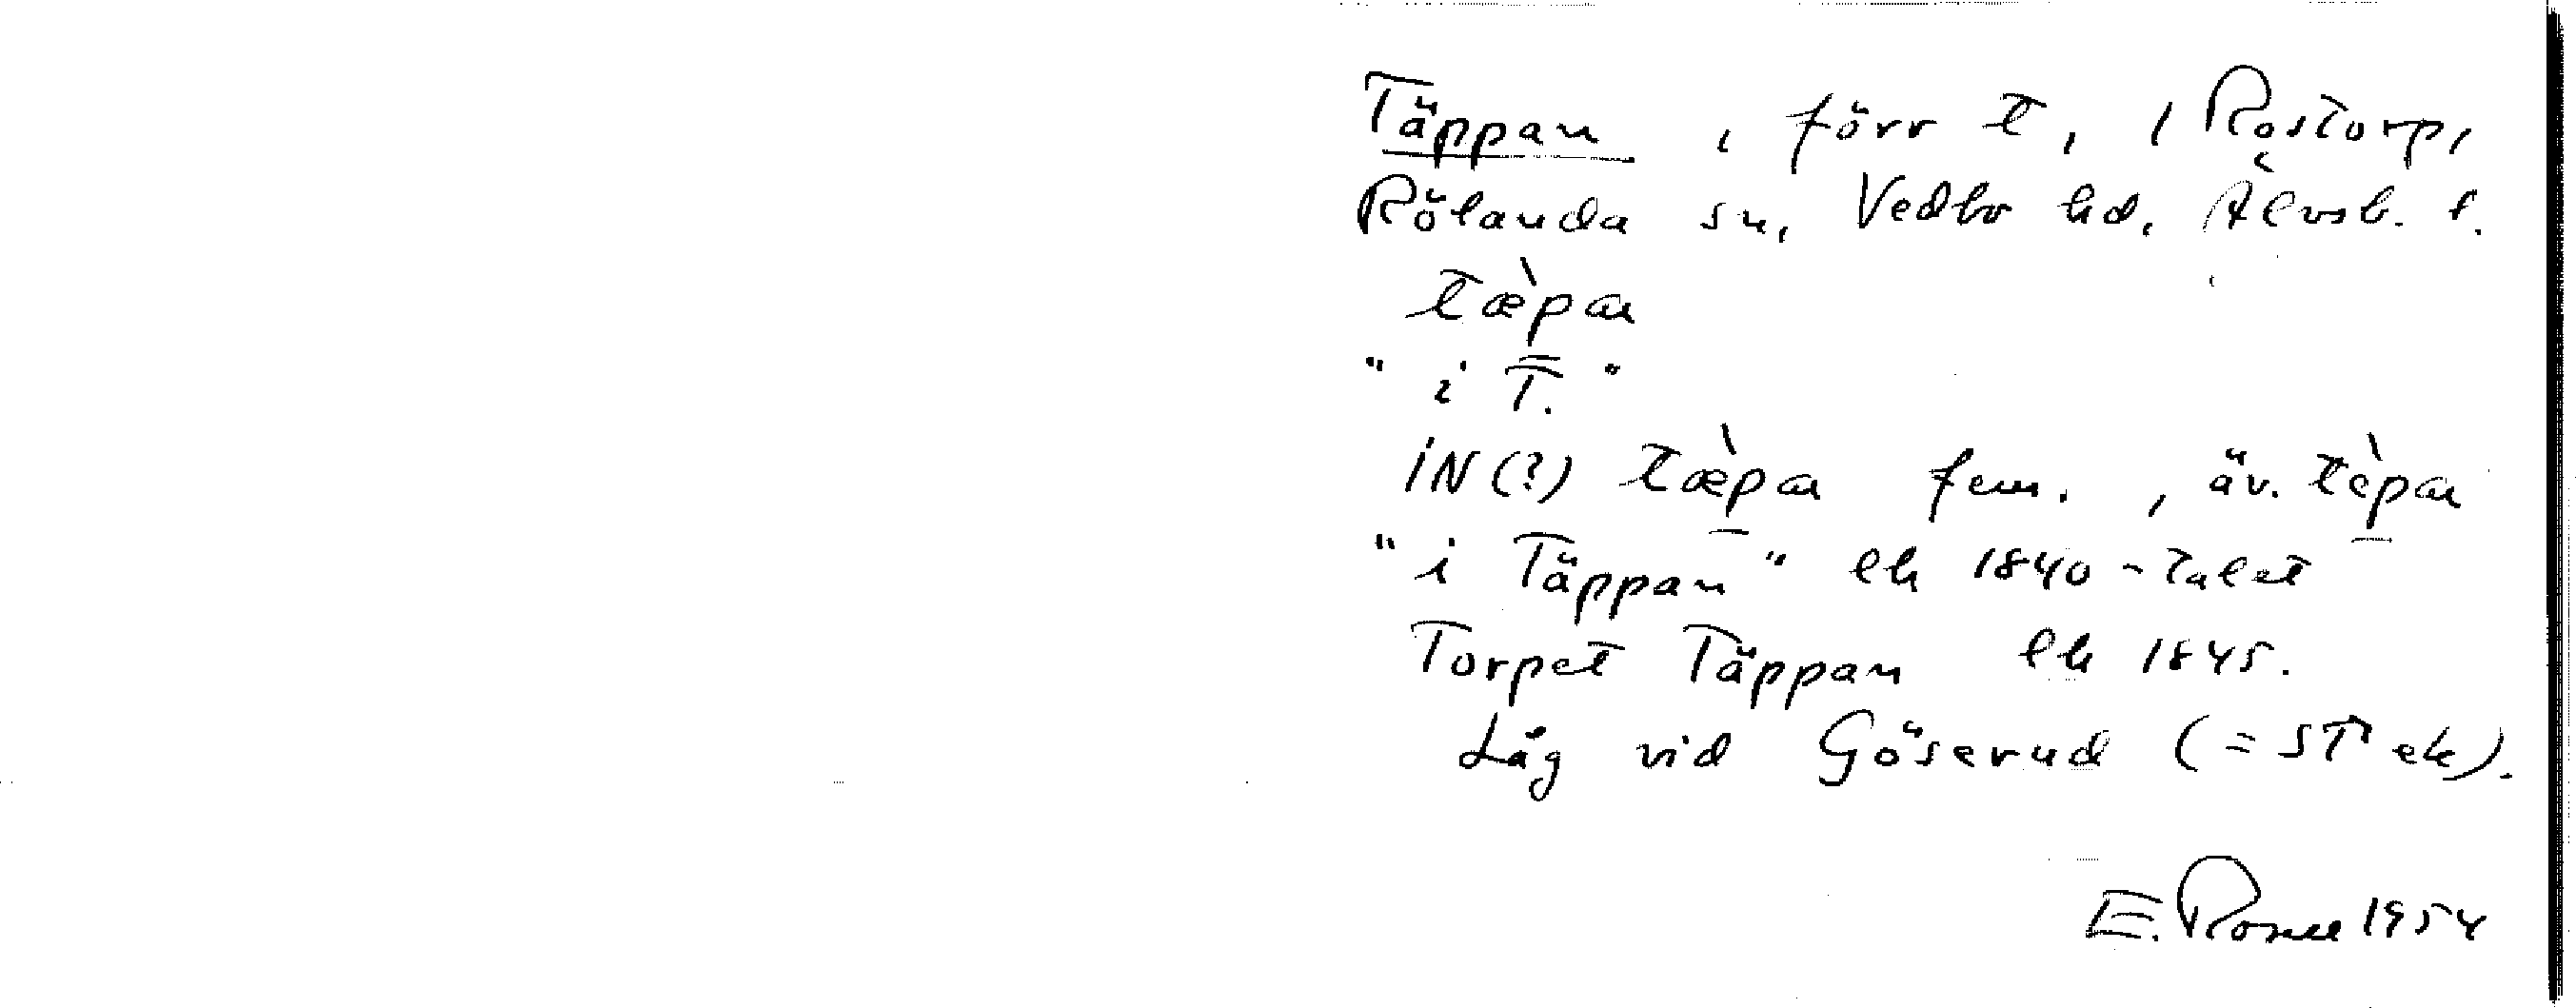 Täppan, förr t, i Rostorp,
Rölanda sn, Vedbo hd, Älvsb. l.
tæ̀pan
"i T."
iN(?) tæ̀pan fem., äv. tèpan
"i Täppan" lh 1840-talet
Torpet Täppan lh 1845.
Låg vid Göserud (= ST ek).
E. Rosell 1954